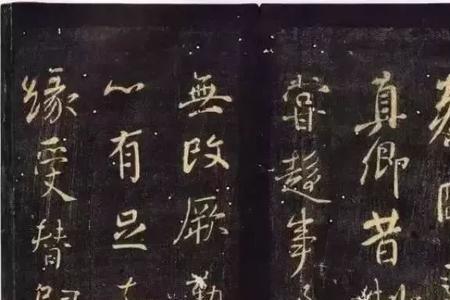 真卿昔
嘗趍事
無改厥勤
心有足
緣受替